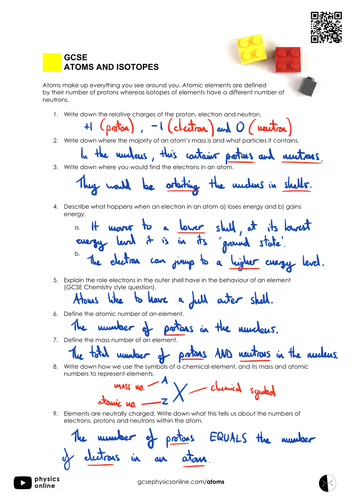 GCSE
ATOMS AND ISOTOPES
Atoms make up everything you see around you. Atomic elements are defined
by their number of protons whereas isotopes of elements have a different number of
neutrons.
1. Write down the relative charges of the proton, electron and neutron.
+1 (proton), -1 (electron) and 0 (neutron)
2. Write down where the majority of an atom's mass is and what particles it contains.
In the nucleus, this contains protons and neutrons.
3. Write down where you would find the electrons in an atom.
They would be orbiting the nucleus in shells.
4. Describe what happens when an electron in an atom a) loses energy and b) gains
energy.
a. It moves to a lower shell, at its lowest
energy level it is in its 'ground state'.
b. The electron can jump to a higher energy level.
5. Explain the role electrons in the outer shell have in the behaviour of an element
(GCSE Chemistry style question).
Atoms like to have a full outer shell.
6. Define the atomic number of an element.
The number of protons in the nucleus.
7. Define the mass number of an element.
The total number of protons AND neutrons in the nucleus.
8. Write down how we use the symbols of a chemical element, and its mass and atomic
numbers to represent elements.
mass no. A X chemical symbol
atomic no. Z
9. Elements are neutrally charged. Write down what this tells us about the numbers of
electrons, protons and neutrons within the atom.
The number of protons EQUALS the number
of electrons in an atom.
physics
online
gcsephysicsonline.com/atoms